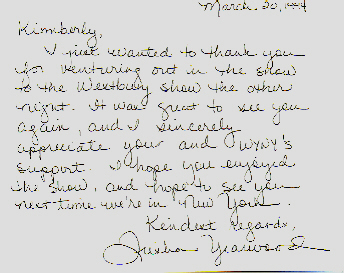 March 20, 1994
Kimberly,
I just wanted to thank you
for venturing out in the snow
to the Westbury show the other
night. It was great to see you
again, and I sincerely
appreciate your and WYNY's
support. I hope you enjoyed
the show, and hope to see you
next time we're in New York.
Kindest regards,
Trisha Yearwood